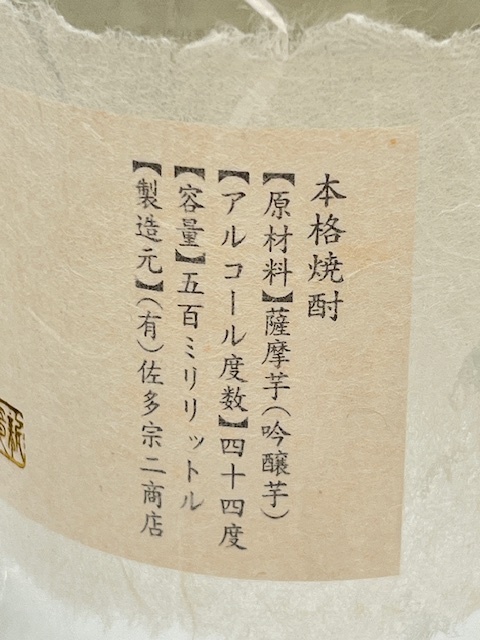 本格焼酎
【原材料】薩摩芋(吟醸芋)
【アルコール度数】四十四度
【容量】五百ミリリットル
【製造元】(有)佐多宗二商店